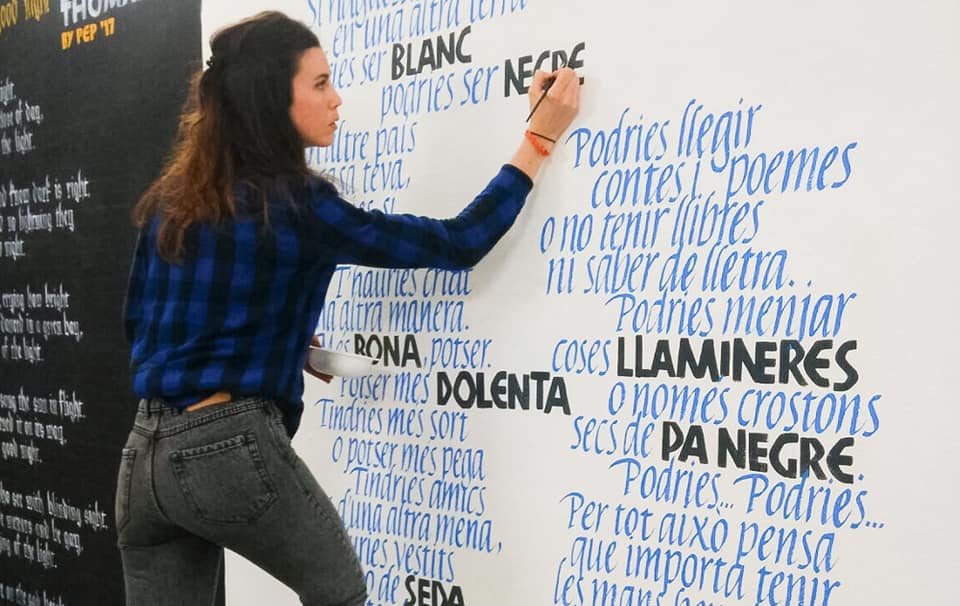 good night
THOMAS
BY PEP '17
of day,
the light.
know dark is right,
no lightning they
night.
crying how bright
danced in a green bay,
of the light.
sang the sun in flight,
it on its way,
good night.
see with blinding sight
and be gay,
of the light.
en una altra terra
ser BLANC
podries ser NEGRE
altre país
casa teva,
T'hauries criat
altra manera.
Més BONA, potser.
Potser més DOLENTA
Tindries més sort
o potser més pega
Tindries amics
d'una altra mena,
vestits
de SEDA
Podries llegir
contes i poemes
o no tenir llibres
ni saber de lletra.
Podries menjar
coses LLAMINERES
o només crostons
secs de PA NEGRE.
Podries... Podries...
Per tot això pensa
que importa tenir
les mans